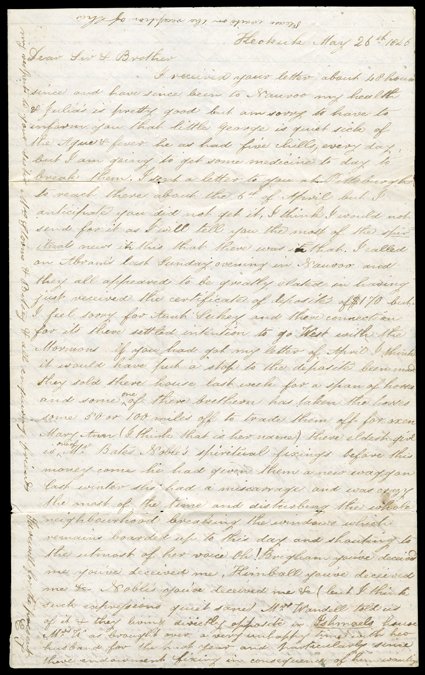 Please write on the reception of this
Keokuk May 26th 1846
Dear Sir & Brother
I received your letter about 48 hours
since and have since been to Nauvoo my health
& Julia's is pretty good but am sorry to have to
inform you that little George is quiet sick of
the Ague & fever he as had five chills, every day,
but I am going to get some medicine to day to
break them. I sent a letter to you at Pittsburgh
to reach there about the 6th of April but I
anticipate you did not get it, I think I would not
send for it as I will tell you the most of the
news in this that there was in that. I called
on Abram's last Sunday evening in Nauvoo and
they all appeared to be greatly elated in having
just received the certificate of deposite of $170 but
I feel sorry for Aunt and there connection
for its there settled intention to go West with the
Mormons if you had got my letter of April I think
it would have put a stop to the deposite been made
they sold there house last week for a span of horses
and some one of there brethren has taken the horses
some 50 or 100 miles off to trade them off for oxen
Mary Ann (I think that is her name) there eldest girl
is one of Mr Bates Noble's spiritual fixings before this
money come he had given them a new waggon
last winter she had a miscarriage and was crazy
the most of the time and disturbing the whole
neighbourhood breaking the windows which
remains boarded up to this day and shouting to
the utmost of her voice Oh! Brigham you've deceived
me you've deceived me, Kimball you've deceived
me & Nobles you've deceived me & (but I think
such expressions quiet sane) Mrs Wandell told us
of it & they live directly opposite in Ishmael's house
Mrs as brought over a very unhappy time with her
husband for the last year and particularly since
there endowment fixing in consequence of him wanting